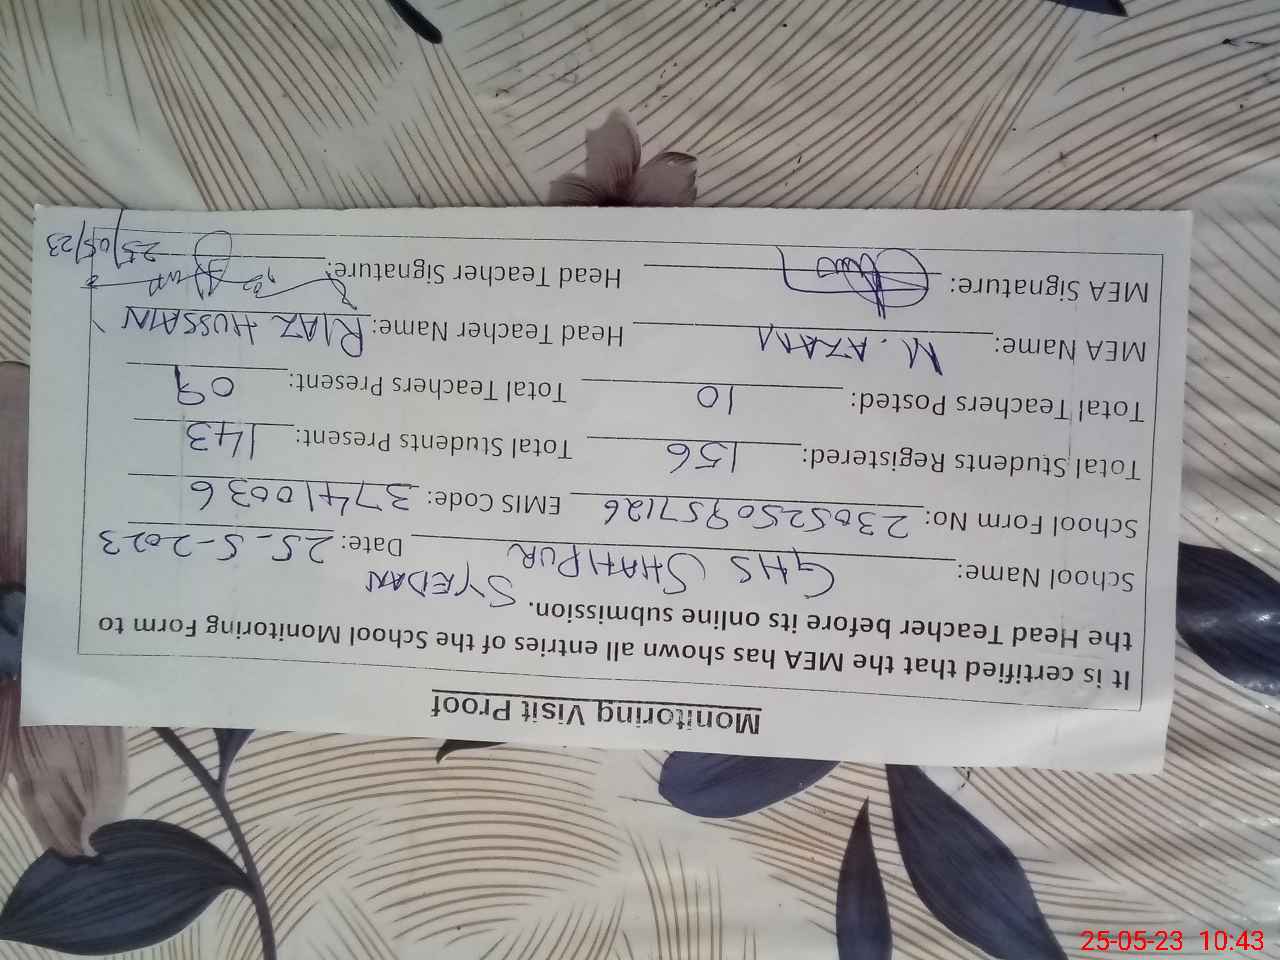 Monitoring Visit Proof
It is certified that the MEA has shown all entries of the School Monitoring Form to
the Head Teacher before its online submission.
School Name: GHS SHAHPUR SYEDAN Date: 25-5-2023
School Form No: 2305250957126 EMIS Code: 37410036
Total Students Registered: 156 Total Students Present: 143
Total Teachers Posted: 10 Total Teachers Present: 09
MEA Name: M. AZAM Head Teacher Name: RIAZ HUSSAIN
MEA Signature: Head Teacher Signature: 25/05/23
25-05-23 10:43